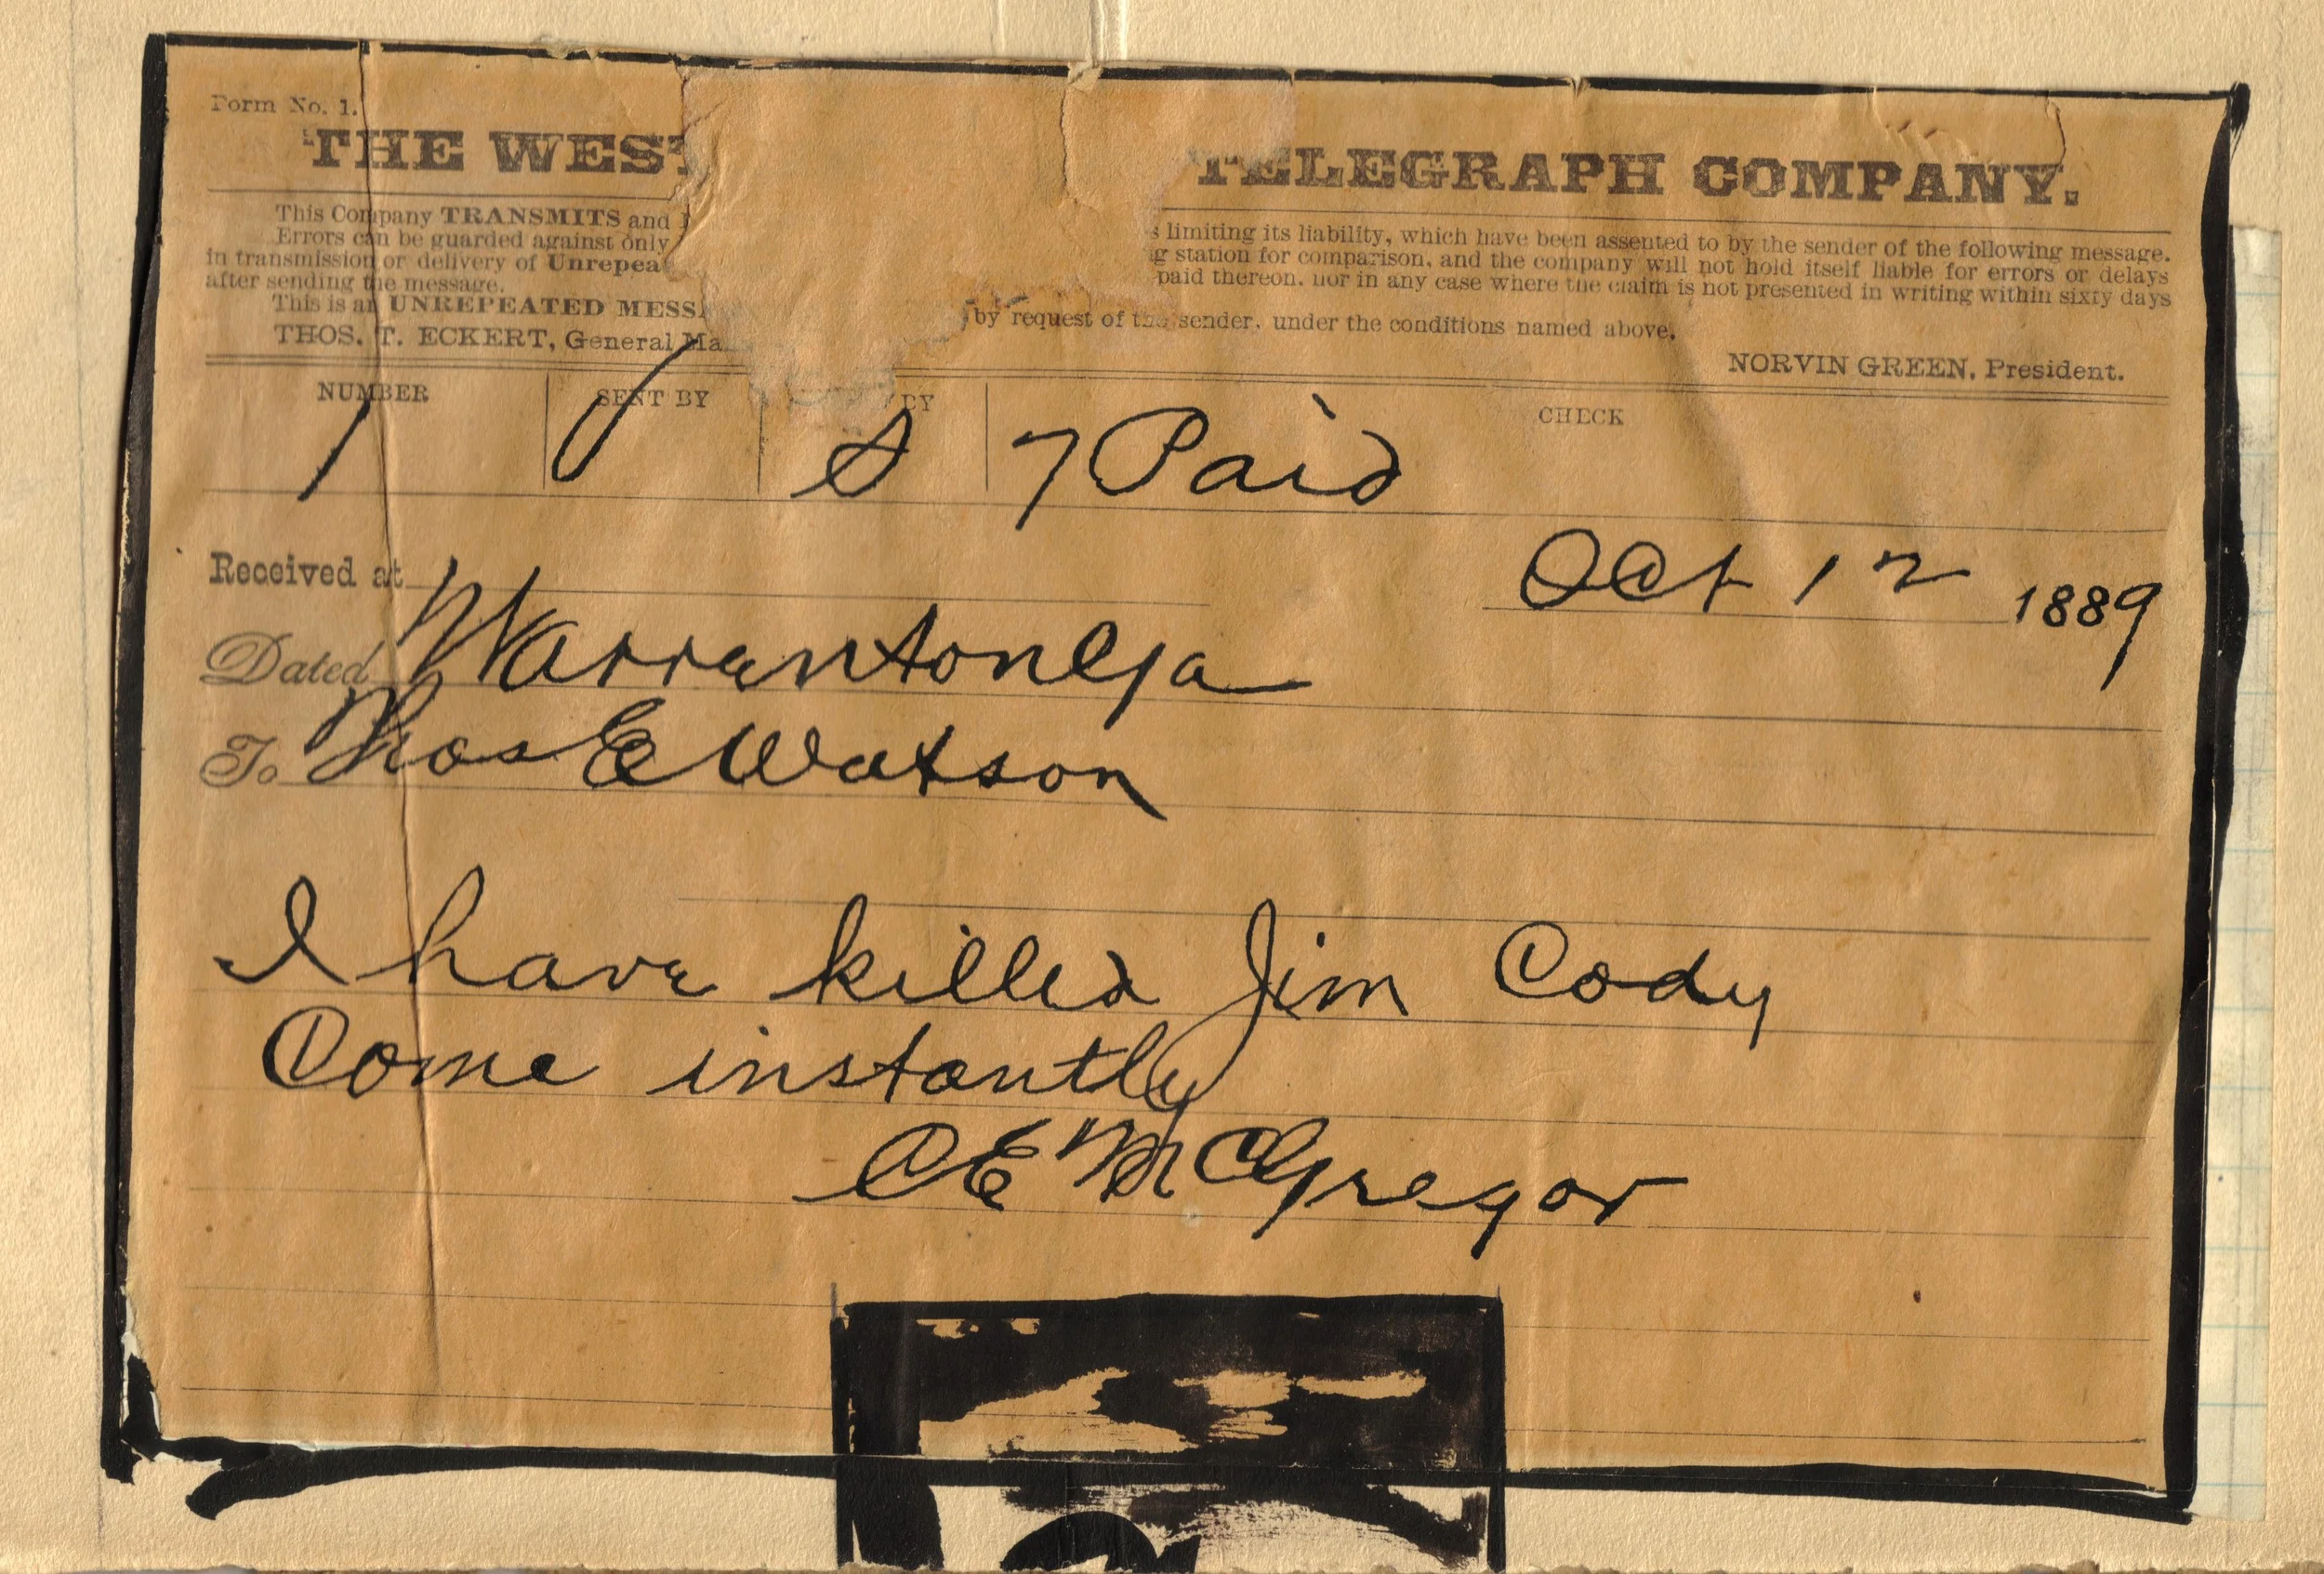 Form No. 1.
THE WEST TELEGRAPH COMPANY.
This Company TRANSMITS and limiting its liability, which have been assented to by the sender of the following message.
Errors can be guarded against only station for comparison, and the company will not hold itself liable for errors or delays
in transmission or delivery of Unrepea paid thereon, nor in any case where the claim is not presented in writing within sixty days
after sending the message.
This is an UNREPEATED MESSA by request of the sender, under the conditions named above.
THOS. T. ECKERT, General Ma NORVIN GREEN, President.
NUMBER SENT BY BY CHECK
1 7 Paid
Received at Oct 12 1889
Dated Warrenton Ga
To Thos E Watson
I have killed Jim Cody
Come instantly
C E McGregor